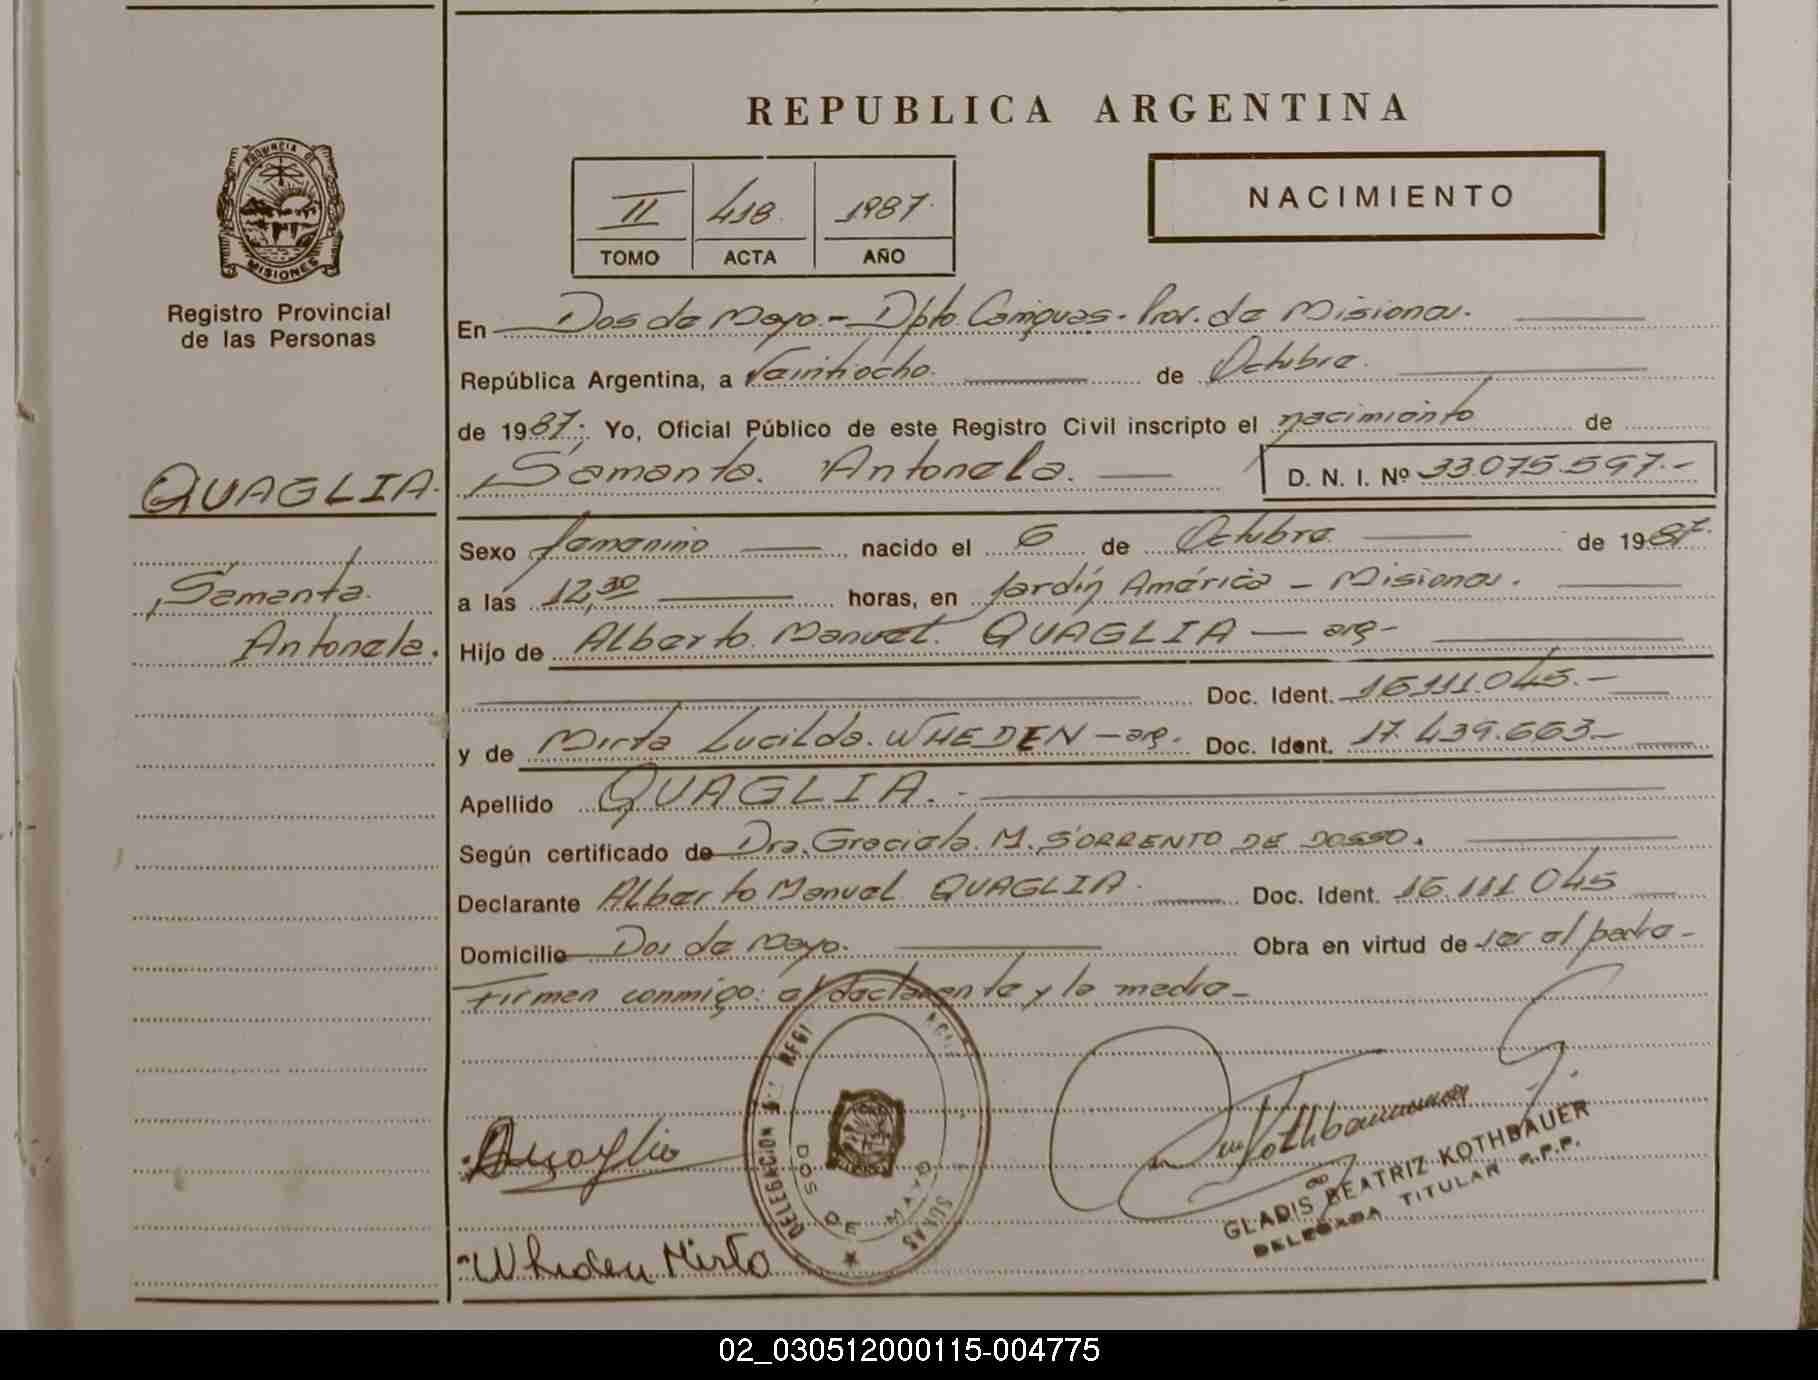 REPUBLICA ARGENTINA
PROVINCIA DE
MISIONES
Registro Provincial
de las Personas
II 418. 1987.
TOMO ACTA AÑO
NACIMIENTO
En Dos de Mayo.- Dpto. Cainguas. Prov. de Misiones.
República Argentina, a Veintiocho. de Octubre.
de 1987; Yo, Oficial Público de este Registro Civil inscripto el nacimiento de
Samanta. Antonela. D. N. I. Nº 33.075.597.-
QUAGLIA.
Samanta.
Antonela.
Sexo femenino nacido el 6 de Octubre de 1987.
a las 12,30 horas, en Jardín América - Misiones.
Hijo de Alberto Manuel. QUAGLIA — arg-
Doc. Ident. 16.111.045.-
y de Mirta Lucilda. WHEDEN - arg. Doc. Ident. 17.439.663.-
Apellido QUAGLIA.-
Según certificado de Dra. Graciela. M. SORRENTO DE DOSSO.
Declarante Alberto Manuel QUAGLIA. Doc. Ident. 16.111.045
Domicilio Dos de Mayo. Obra en virtud de ser el padre-
Firman conmigo: el declarante y la madre-
Quaglia
DELEGACION REGI
DOS DE MAYO
Kothbauer
GLADIS BEATRIZ KOTHBAUER
DELEGADA TITULAR R.P.P.
Wheden Mirta
02_030512000115-004775